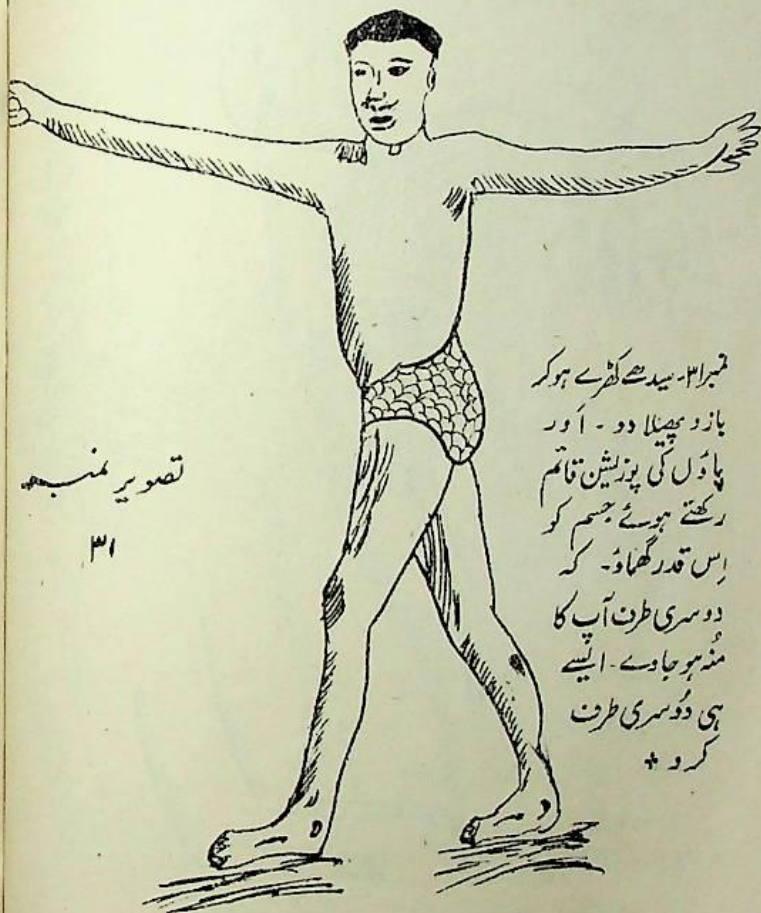 نمبر۳۱۔ سیدھے کھڑے ہوکر
بازو پھیلا دو ۔ اَور
پاؤں کی پوزیشن قائم
رکھتے ہوئے جسم کو
اِس قدر گھماؤ۔ کہ
دوسری طرف آپ کا
مُنہ ہو جاوے۔ ایسے
ہی دُوسری طرف
کرو +
تصویر نمبر
۳۱